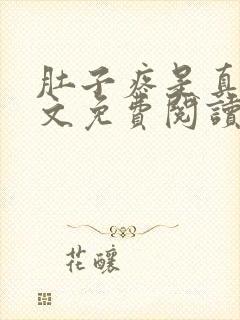 肚子疼是真
文免費閱讀
花釀